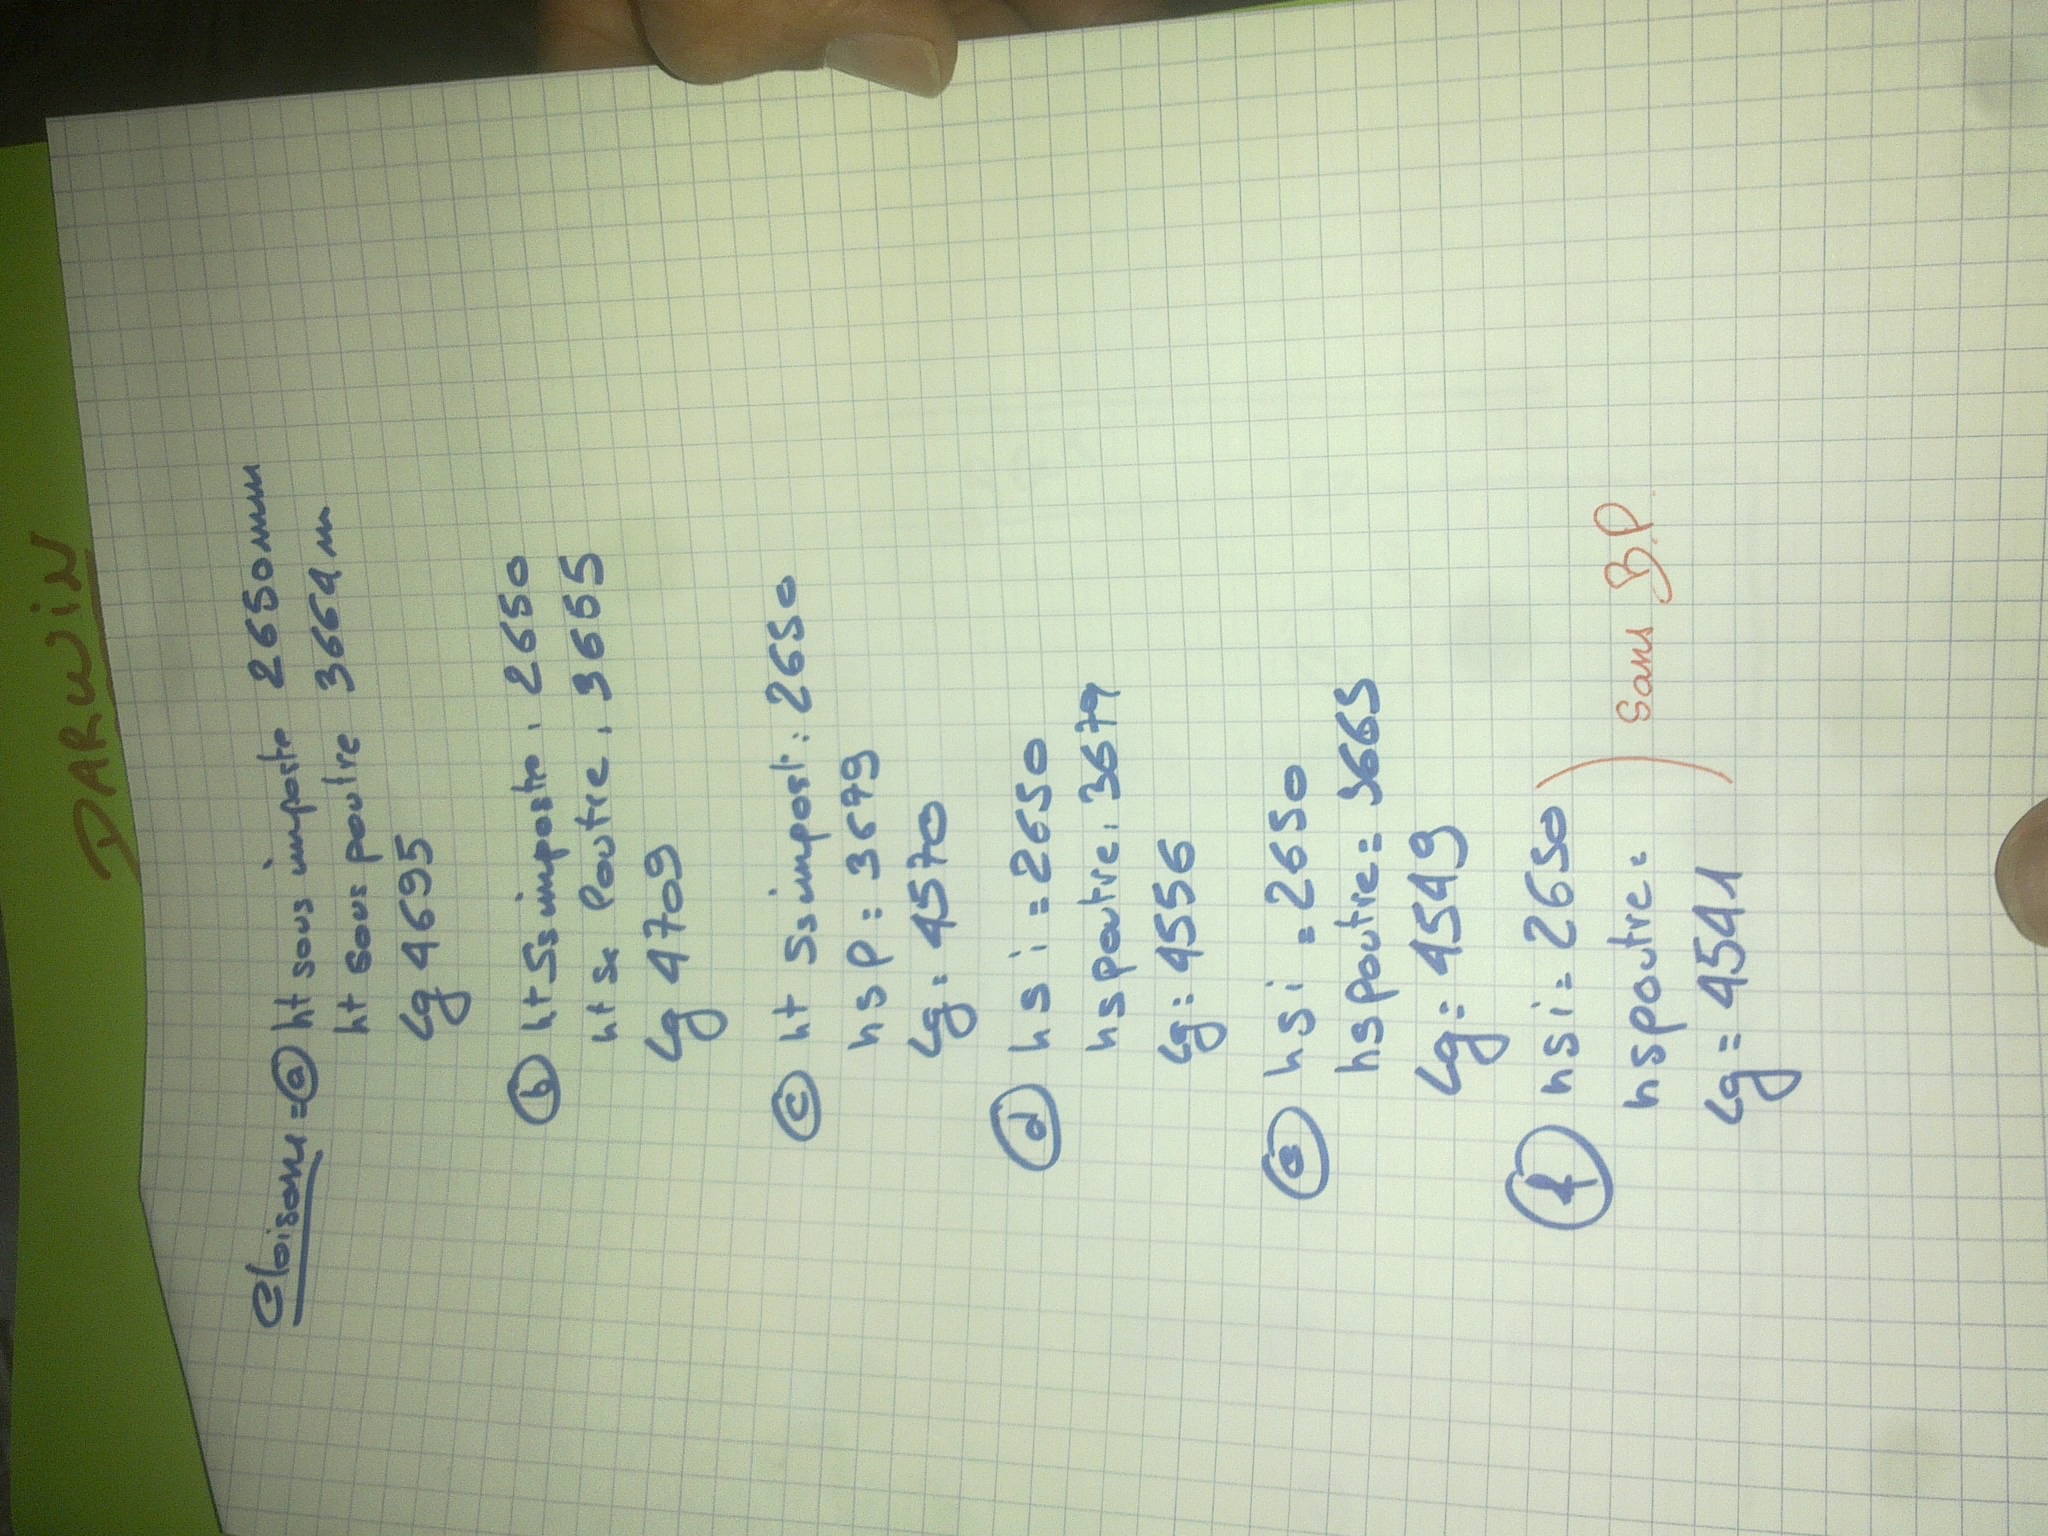 DARWIN
Cloisons = a ht sous imposte 2650mm
ht sous poutre 3664 m
Lg 4695
b ht Ss imposte. 2650
ht Ss Poutre. 3665
Lg 4709
c ht Ss impost: 2650
hsP: 3679
Lg: 4570
d hsi = 2650
hs poutre. 3679
Lg: 4556
e hsi = 2650
hs poutre = 3665
Lg: 4549
f hsi = 2650
hs poutre =
Lg = 4541
Sans B.P.